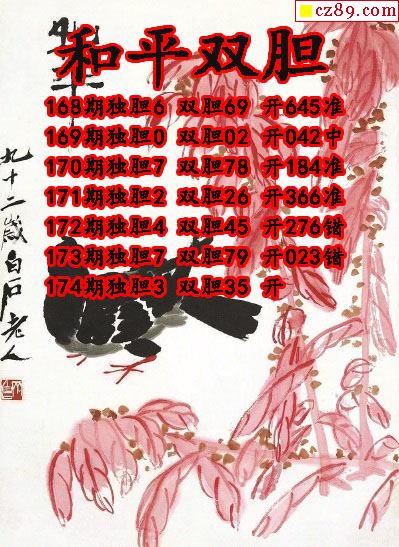 cz89.com
和平双胆
168期独胆6 双胆69 开645准
169期独胆0 双胆02 开042中
170期独胆7 双胆78 开184准
171期独胆2 双胆26 开366准
172期独胆4 双胆45 开276错
173期独胆7 双胆79 开023错
174期独胆3 双胆35 开
九十二岁白石老人